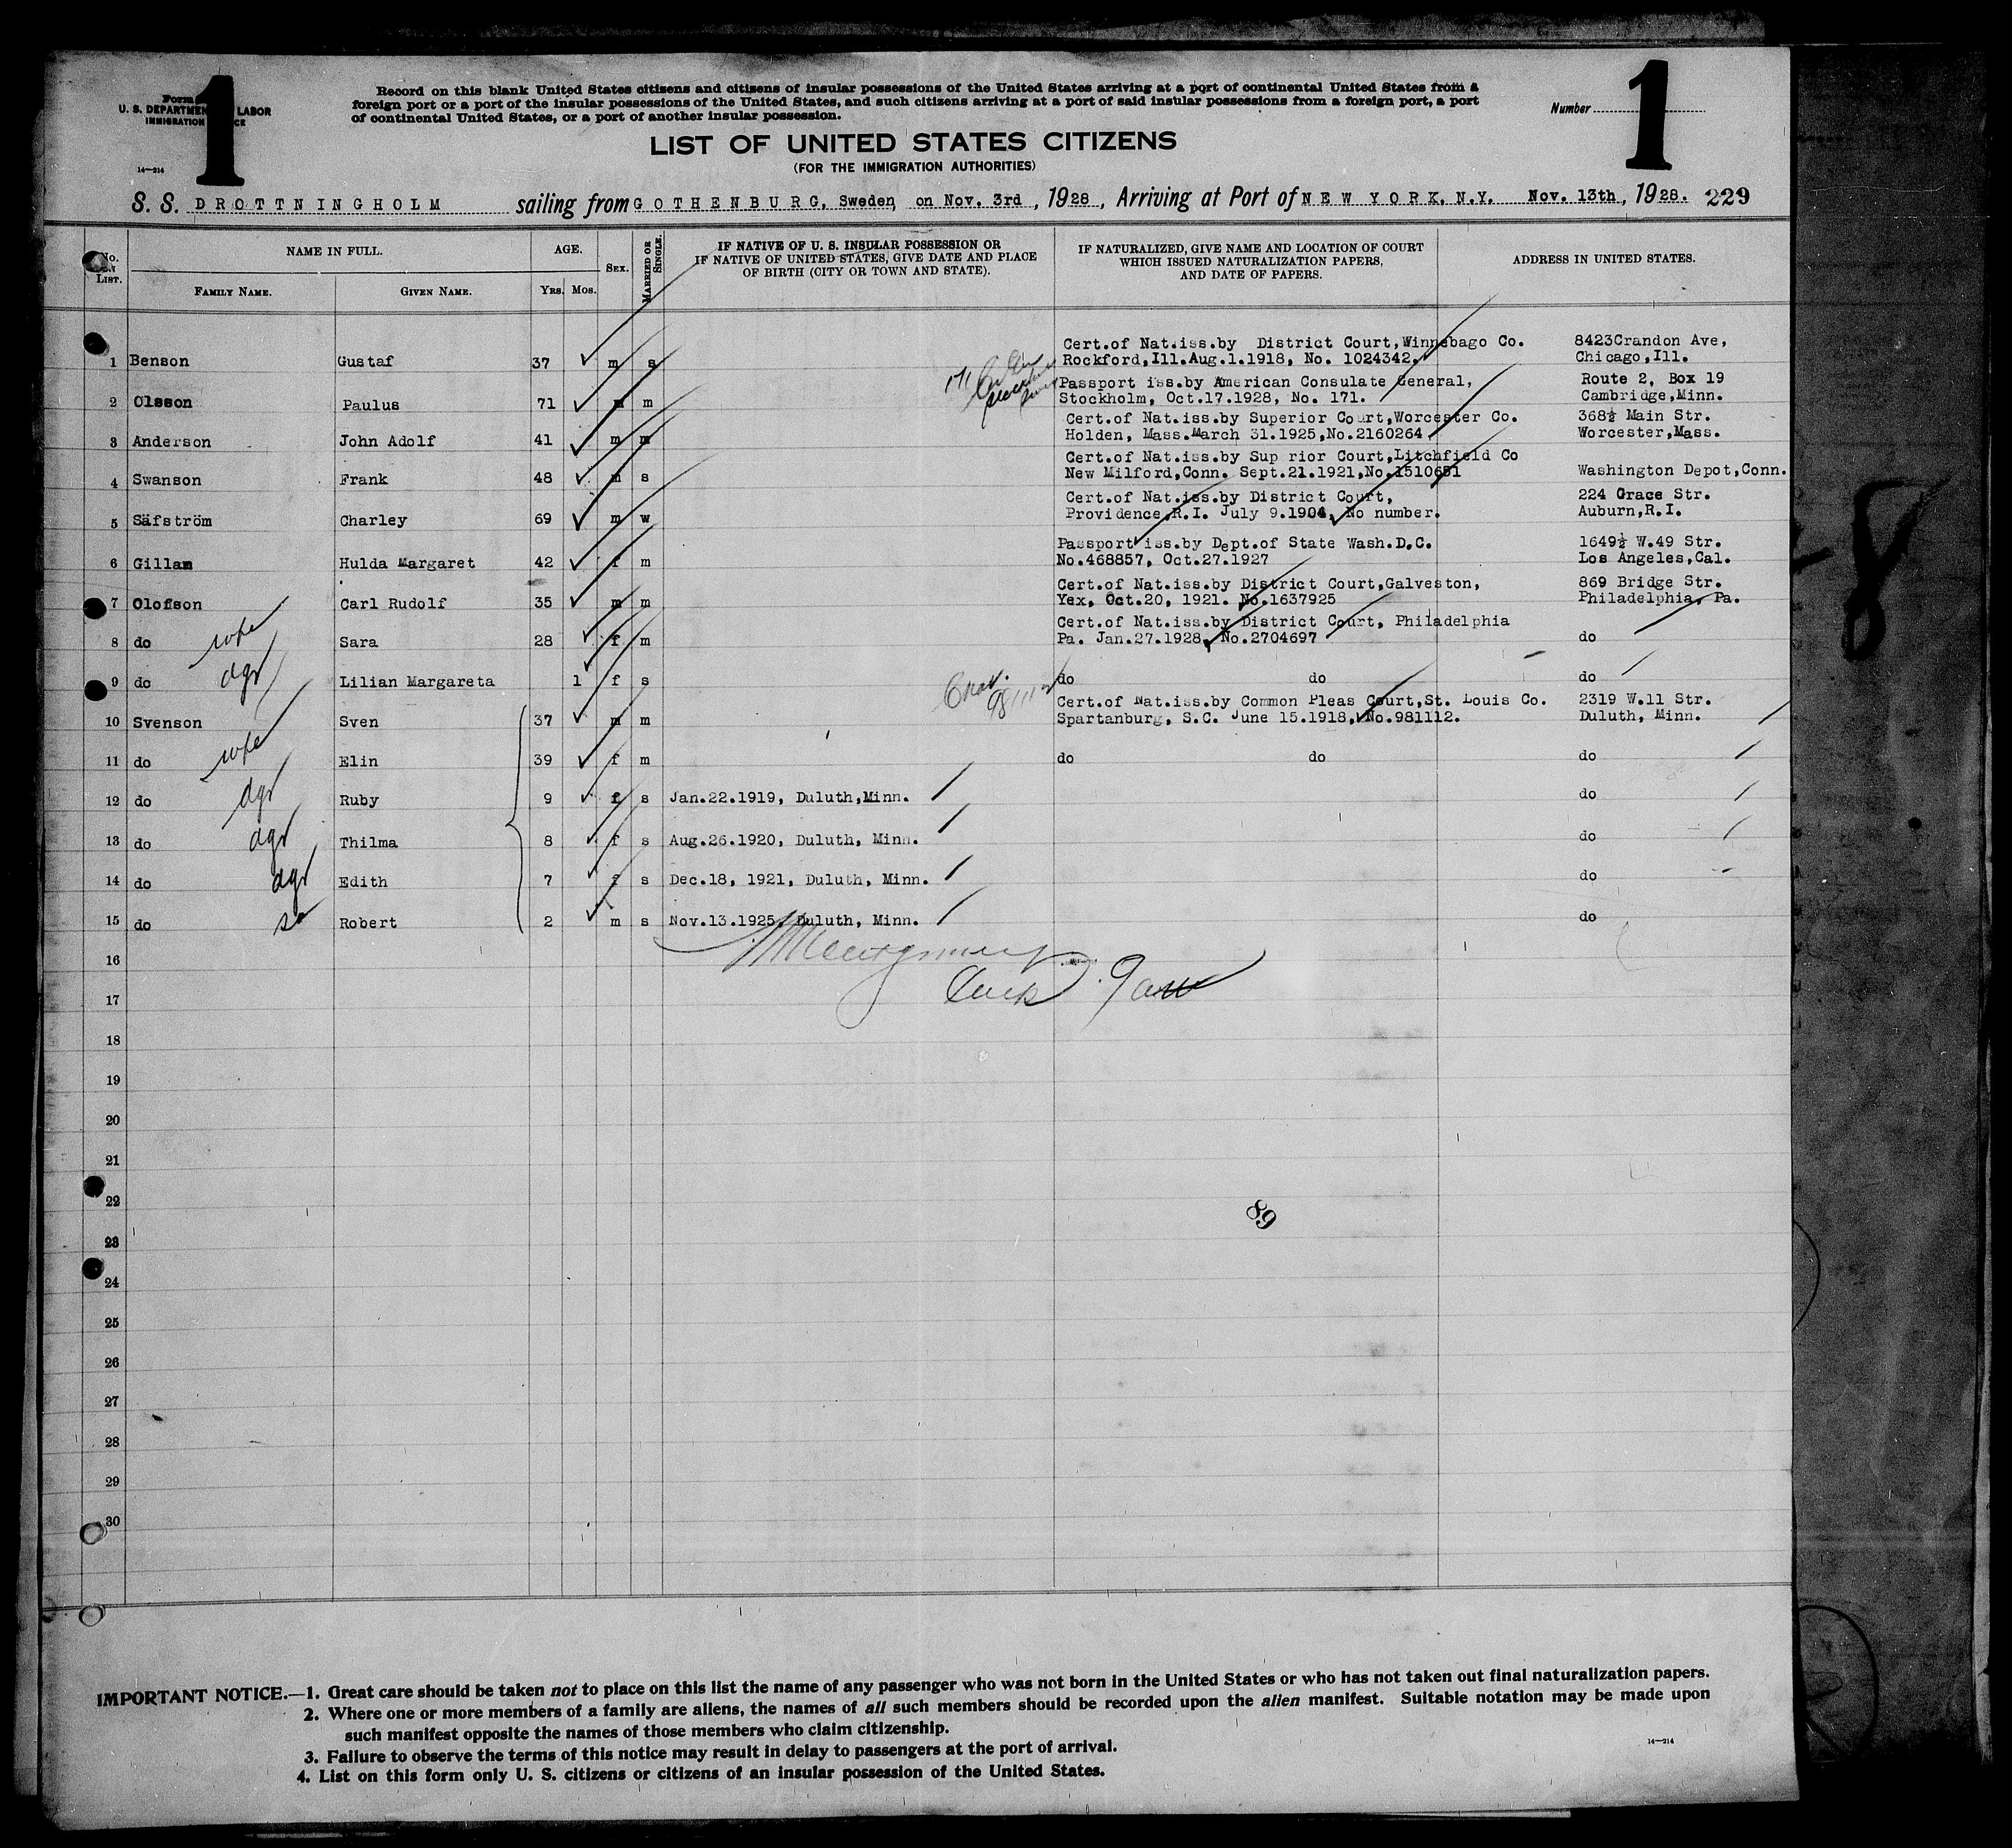 1
1
Form
U. S. DEPARTMEN LABOR
IMMIGRATION CE
14—214
Record on this blank United States citizens and citizens of insular possessions of the United States arriving at a port of continental United States from a
foreign port or a port of the insular possessions of the United States, and such citizens arriving at a port of said insular possessions from a foreign port, a port
of continental United States, or a port of another insular possession.
Number
LIST OF UNITED STATES CITIZENS
(FOR THE IMMIGRATION AUTHORITIES)
S. S. DROTTNINGHOLM sailing from GOTHENBURG, Sweden, on Nov. 3rd, 1928, Arriving at Port of NEW YORK, N.Y. Nov. 13th, 1928. 229
No. on List.
NAME IN FULL.
Family Name.
Given Name.
AGE.
Yrs. Mos.
Sex.
Married or Single.
IF NATIVE OF U. S. INSULAR POSSESSION OR
IF NATIVE OF UNITED STATES, GIVE DATE AND PLACE
OF BIRTH (CITY OR TOWN AND STATE).
IF NATURALIZED, GIVE NAME AND LOCATION OF COURT
WHICH ISSUED NATURALIZATION PAPERS,
AND DATE OF PAPERS.
ADDRESS IN UNITED STATES.
Cert.of Nat.iss.by District Court,Winnebago Co. 8423Crandon Ave,
1 Benson Gustaf 37 m s Rockford,Ill.Aug.1.1918, No. 1024342. Chicago,Ill.
171
Passport iss.by American Consulate General, Route 2, Box 19
2 Olsson Paulus 71 m m Stockholm, Oct.17.1928, No. 171. Cambridge,Minn.
Cert.of Nat.iss.by Superior Court,Worcester Co. 368½ Main Str.
3 Anderson John Adolf 41 m m Holden, Mass.March 31.1925,No.2160264 Worcester,Mass.
Cert.of Nat.iss.by Sup rior Court,Litchfield Co
4 Swanson Frank 48 m s New Milford,Conn. Sept.21.1921,No.1510651 Washington Depot,Conn.
Cert.of Nat.iss.by District Court, 224 Grace Str.
5 Säfström Charley 69 m w Providence,R.I. July 9.1904, No number. Auburn,R.I.
Passport iss.by Dept.of State Wash.D.C. 1649½ W.49 Str.
6 Gillan Hulda Margaret 42 f m No.468857, Oct.27.1927 Los Angeles,Cal.
Cert.of Nat.iss.by District Court,Galveston, 869 Bridge Str.
7 Olofson Carl Rudolf 35 m m Yex, Oct.20, 1921. No.1637925 Philadelphia, Pa.
Cert.of Nat.iss.by District Court, Philadelphia
8 do wife Sara 28 f m Pa. Jan.27.1928, No.2704697 do
9 do dgr Lilian Margareta 1 f s do do do
Cert.of Nat.iss.by Common Pleas Court,St. Louis Co. 2319 W.11 Str.
10 Svenson Sven 37 m m 981112 Spartanburg, S.C. June 15.1918, No.981112. Duluth, Minn.
11 do wife Elin 39 f m do do do
12 do dgr Ruby 9 f s Jan.22.1919, Duluth,Minn. do
13 do dgr Thilma 8 f s Aug.26.1920, Duluth, Minn. do
14 do dgr Edith 7 f s Dec.18, 1921, Duluth, Minn. do
15 do so Robert 2 m s Nov.13.1925, Duluth, Minn. do
16
17
18
19
20
21
22
89
23
24
25
26
27
28
29
30
IMPORTANT NOTICE.—1. Great care should be taken not to place on this list the name of any passenger who was not born in the United States or who has not taken out final naturalization papers.
2. Where one or more members of a family are aliens, the names of all such members should be recorded upon the alien manifest. Suitable notation may be made upon
such manifest opposite the names of those members who claim citizenship.
3. Failure to observe the terms of this notice may result in delay to passengers at the port of arrival.
4. List on this form only U. S. citizens or citizens of an insular possession of the United States.
14—214
8